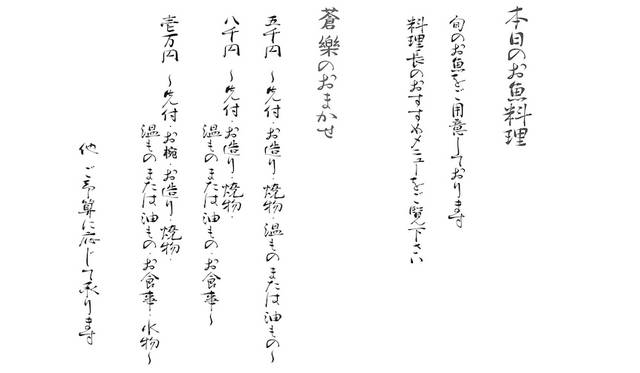 本日のお魚料理
旬のお魚をご用意しております
料理長のおすすめメニューをご覧下さい
蒼樂のおまかせ
五千円 〜先付・お造り・焼物・温ものまたは油もの〜
八千円 〜先付・お造り・焼物・
温ものまたは油もの・お食事〜
壱万円 〜先付・お椀・お造り・焼物・
温ものまたは油もの・お食事・水物〜
他 ご予算に応じて承ります